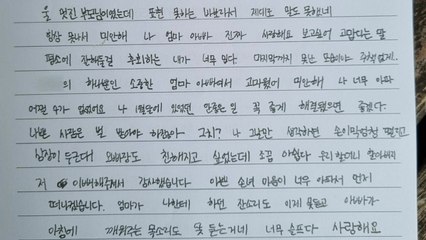 울 멋진 부모님이었는데 표현 못하는 바보라서 제대로 말도 못했네
항상 못나서 미안해 나 엄마 아빠가 진짜 사랑해요 보고싶어 고맙다는 말
평소에 잔해둘걸 후회하는 내가 너무 밉다 마지막까지 못난 모습이야 주책없게..
의 하나뿐인 소중한 엄마 아빠여서 고마웠어 미안해 나 너무 아파
어쩔 수가 없었어요 나 1월달에 있었던 안좋은 일 꼭 좋게 해결됬으면 좋겠다.
나쁜 사람은 벌 받아야 하잖아 그치? 나 그날만 생각하면 손이막엄청 떨리고
심장이 두근대 오빠랑도 친해지고 싶었는데 조끔 아쉽다 우리 할머니 할아버지
저 이뻐해주셔서 감사했습니다. 이쁜 손녀 마음이 너무 아파서 먼저
떠나겠습니다. 엄마가 나한테 하던 잔소리도 이제 못듣고 아빠가
아침에 깨워주는 목소리도 못 듣는거네 너무 슬프다 사랑해요